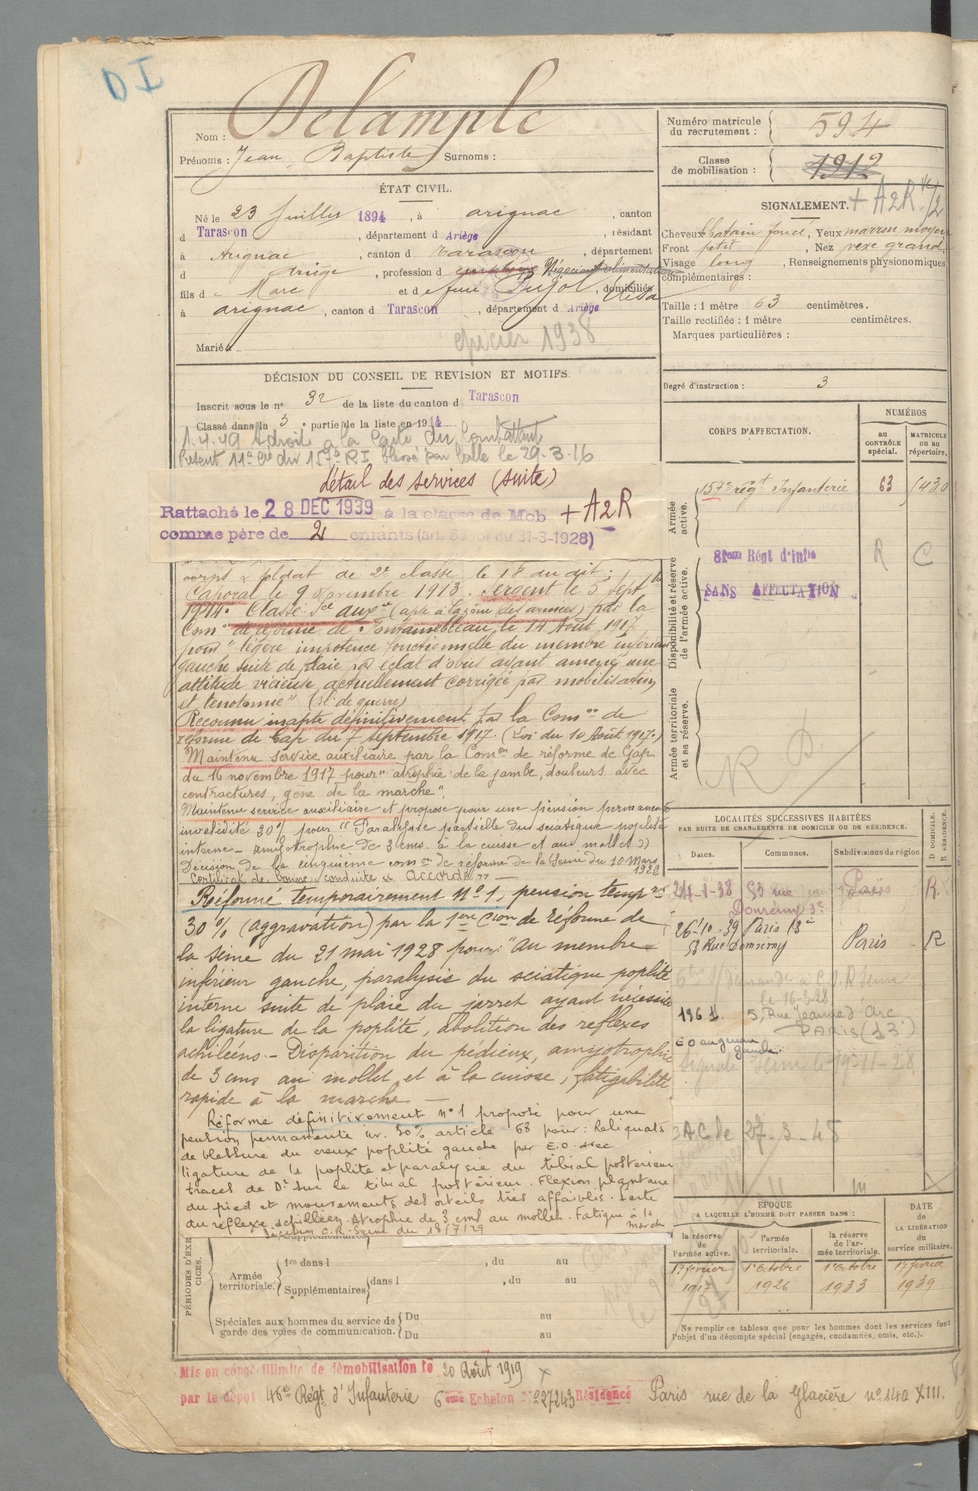 D I
Nom : Delample
Prénoms : Jean Baptiste Surnoms :
Numéro matricule du recrutement : 594
Classe de mobilisation : 1912
+ A2R
ÉTAT CIVIL.
Né le 23 Juillet 1894, à arignac, canton
d Tarascon, département d Ariège, résidant
à Arignac, canton d Tarascon, département
d Ariège, profession d employé Négociant alimentation
fils d e Marc et d e feue Pujol Elisa, domiciliés
à arignac, canton d Tarascon, département d Ariège
épicier 1938
Marié
SIGNALEMENT.
Cheveux chatain foncé, Yeux marron moyen
Front petit, Nez vexe grand
Visage long, Renseignements physionomiques
complémentaires :
Taille : 1 mètre 63 centimètres.
Taille rectifiée : 1 mètre centimètres.
Marques particulières :
Degré d'instruction : 3
DÉCISION DU CONSEIL DE REVISION ET MOTIFS.
Inscrit sous le n° 32 de la liste du canton d Tarascon
Classé dans la 3e partie de la liste en 1914
1.4.49 A droit à la Carte du Combattant
Présent 11e Cie du 157e RI blessé par balle le 29-3-16
détail des services (suite)
Rattaché le 28 DEC 1939 à la classe de Mob + A2R
comme père de 2 enfants (art. 58 loi du 31-3-1928)
corps & soldat de 2e classe le 18 du dit;
Caporal le 9 novembre 1913. Sergent le 5 Sept
1914. Classé Sce auxre (apte à la zône des armées) par la
Comon de réforme de Fontainebleau, le 14 Août 1917,
pour "légère impotence fonctionnelle du membre inférieur
gauche suite de plaie par éclat d'obus ayant amené une
attitude vicieuse, actuellement corrigée par mobilisation
et tenotomie" (bl. de guerre)
Reconnu inapte définitivement par la Comon de
réforme de Gap du 7 septembre 1917. (Loi du 10 Août 1917.)
Maintenu service auxiliaire par la Comon de réforme de Gap
du 16 novembre 1917 pour "atrophie de la jambe, douleurs avec
contractures, gêne de la marche".
Maintenu service auxiliaire et proposé pour une pension permanente
invalidité 20% pour "Paralysie partielle du sciatique poplité
interne - amyotrophie de 3 cms. à la cuisse et au mollet"
Décision de la cinquième comon de réforme de la Seine du 10 Mars 1920
Certificat de bonne conduite "Accordé"
Réformé temporairement N° 1, pension tempre
30% (aggravation) par la 1ère Cion de réforme de
la Seine du 21 mai 1928 pour: "au membre
inférieur gauche, paralysie du sciatique poplité
interne suite de plaie du jarret ayant nécessité
la ligature de la poplité, abolition des réflexes
achiléens - Disparition du pédieux, amyotrophie
de 3 cms au mollet et à la cuisse, fatigabilité
rapide à la marche —
Réforme définitivement n°1 proposé pour une
pension permanente inv. 30% article 68 pour: Reliquats
de blessure du creux poplité gauche par E.O. avec
ligature de la poplité et paralysie du tibial postérieur
traces de Dr sur le tibial postérieur. Flexion plantaire
du pied et mouvements des orteils très affaiblis. Perte
du réflexe achilléen. Atrophie de 3 cms au mollet. Fatigue à la marche
Décision C.R. Seine du 18/7/29
CORPS D'AFFECTATION.
NUMÉROS
au CONTRÔLE spécial.
MATRICULE ou au répertoire.
Armée active.
157e régt Infanterie 63 1430
Disponibilité et réserve de l'armée active.
81eme Régt d'infie R C
SANS AFFECTATION
Armée territoriale et sa réserve.
R D
LOCALITÉS SUCCESSIVES HABITÉES
PAR SUITE DE CHANGEMENTS DE DOMICILE OU DE RÉSIDENCE.
Dates. Communes. Subdivisions de région
D DOMICILE. R RÉSIDENCE.
24-1-38 53 rue Domrémy 3e Paris R
26-10-39 Paris 13e
53 Rue Domrémy Paris R
le 16-3-28
1961 5, Rue Jeanne d'Arc
PARIS (13e)
Signalé Seine le 19-11-28
27-3-48
ÉPOQUE
A LAQUELLE L'HOMME DOIT PASSER DANS :
la réserve de l'armée active. l'armée territoriale. la réserve de l'armée territoriale.
DATE de LA LIBÉRATION du service militaire.
1er février 1917 1er Octobre 1926 1er Octobre 1933 1er février 1939
Ne remplir ce tableau que pour les hommes dont les services font
l'objet d'un décompte spécial (engagés, condamnés, omis, etc.).
PÉRIODES D'EXERCICES.
Supplémentaires
Armée territoriale.
1re dans l , du au
Supplémentaires dans l , du au
Spéciales aux hommes du service de garde des voies de communication.
Du au
Du au
Mis en congé illimité de démobilisation le 20 Août 1919 X
par le dépôt 46e Régt d'Infanterie 6eme Echelon N° 227243 Résidence Paris rue de la Glacière n° 140 XIII.